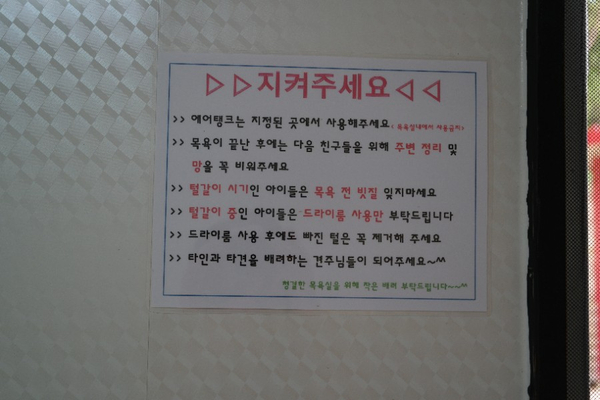 ▷▷지켜주세요◁◁
>> 에어탱크는 지정된 곳에서 사용해주세요( 목욕실내에서 사용금지)
>> 목욕이 끝난 후에는 다음 친구들을 위해 주변 정리 및
망을 꼭 비워주세요
>> 털갈이 시기인 아이들은 목욕 전 빗질 잊지마세요
>> 털갈이 중인 아이들은 드라이룸 사용만 부탁드립니다
>> 드라이룸 사용 후에도 빠진 털은 꼭 제거해 주세요
>> 타인과 타견을 배려하는 견주님들이 되어주세요~^^
청결한 목욕실을 위해 작은 배려 부탁드립니다~~^^